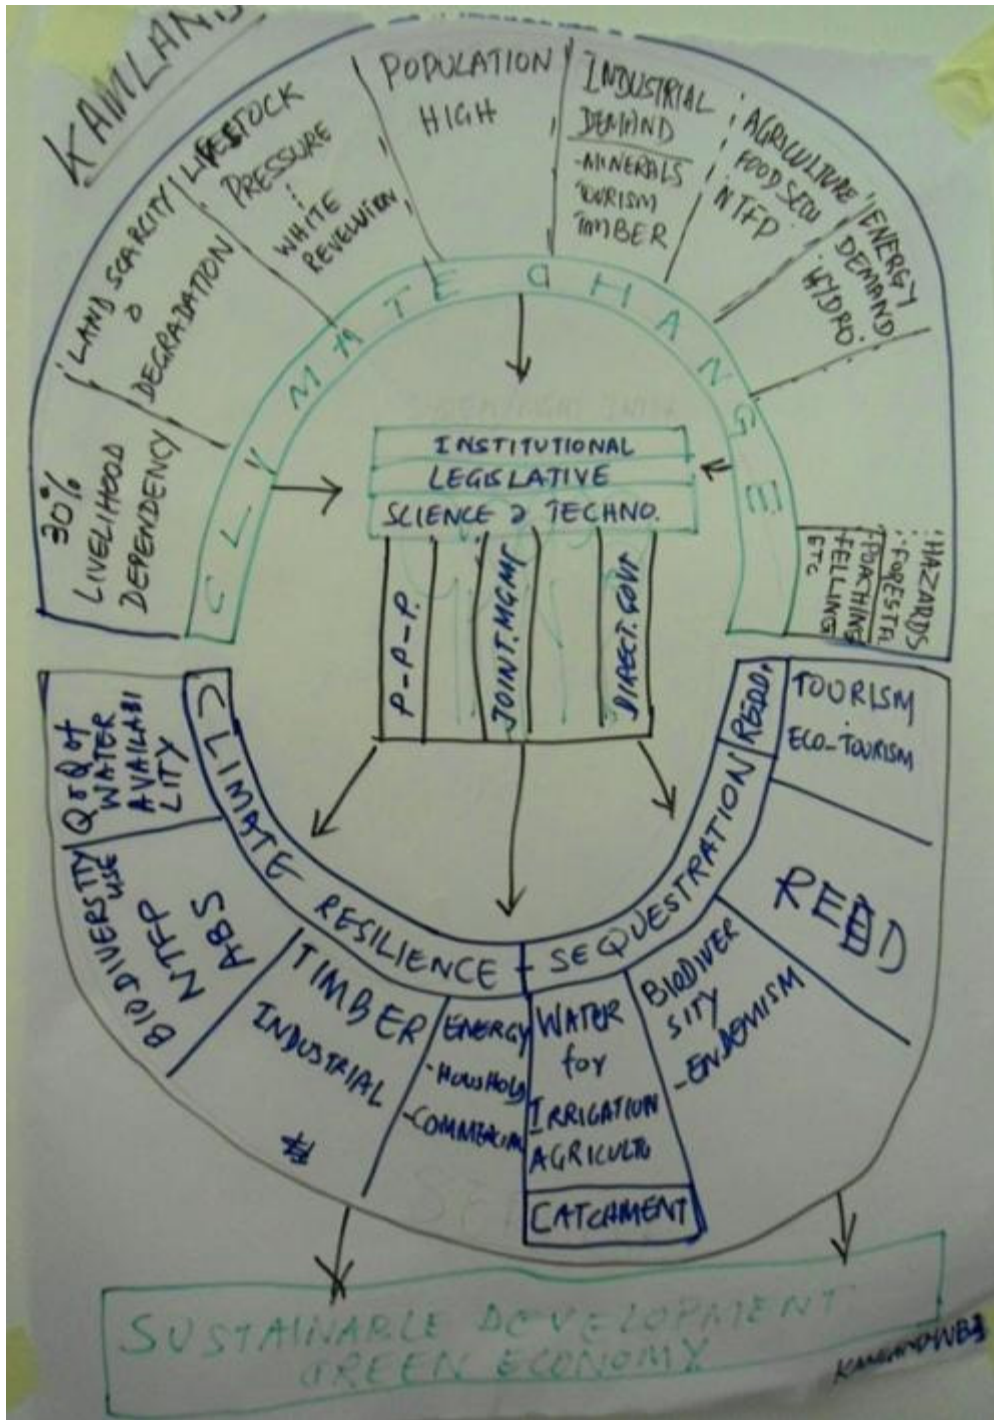 KAMLAND
30%
LIVELIHOOD
DEPENDENCY
LAND SCARCITY
&
DEGRADATION
LIVESTOCK
PRESSURE
WHITE
REVELUTION
POPULATION
HIGH
INDUSTRIAL
DEMAND
-MINERALS
TOURISM
TIMBER
AGRICULTURE
FOOD SECU
NTFP
ENERGY
DEMAND
HYDRO
HAZARDS
FORESTA
POACHING
FELLING
ETC
CLIMATE CHANGE
INSTITUTIONAL
LEGISLATIVE
SCIENCE & TECHNO.
P-P-P.
JOINT.MGMT
DIRECT.GOVT
CLIMATE RESILIENCE - SEQUESTRATION
REDD.
Q & Q of
WATER
AVAILABI
LITY
BIODIVERSITY
USE
NTFP
ABS
TIMBER
INDUSTRIAL
ENERGY
-HOUSHOLD
-COMMERCIAL
WATER
for
IRRIGATION
AGRICULTU
CATCHMENT
BIODIVER
SITY
-ENDEMISM
REDD
TOURISM
ECO-TOURISM
SUSTAINABLE DEVELOPMENT
GREEN ECONOMY